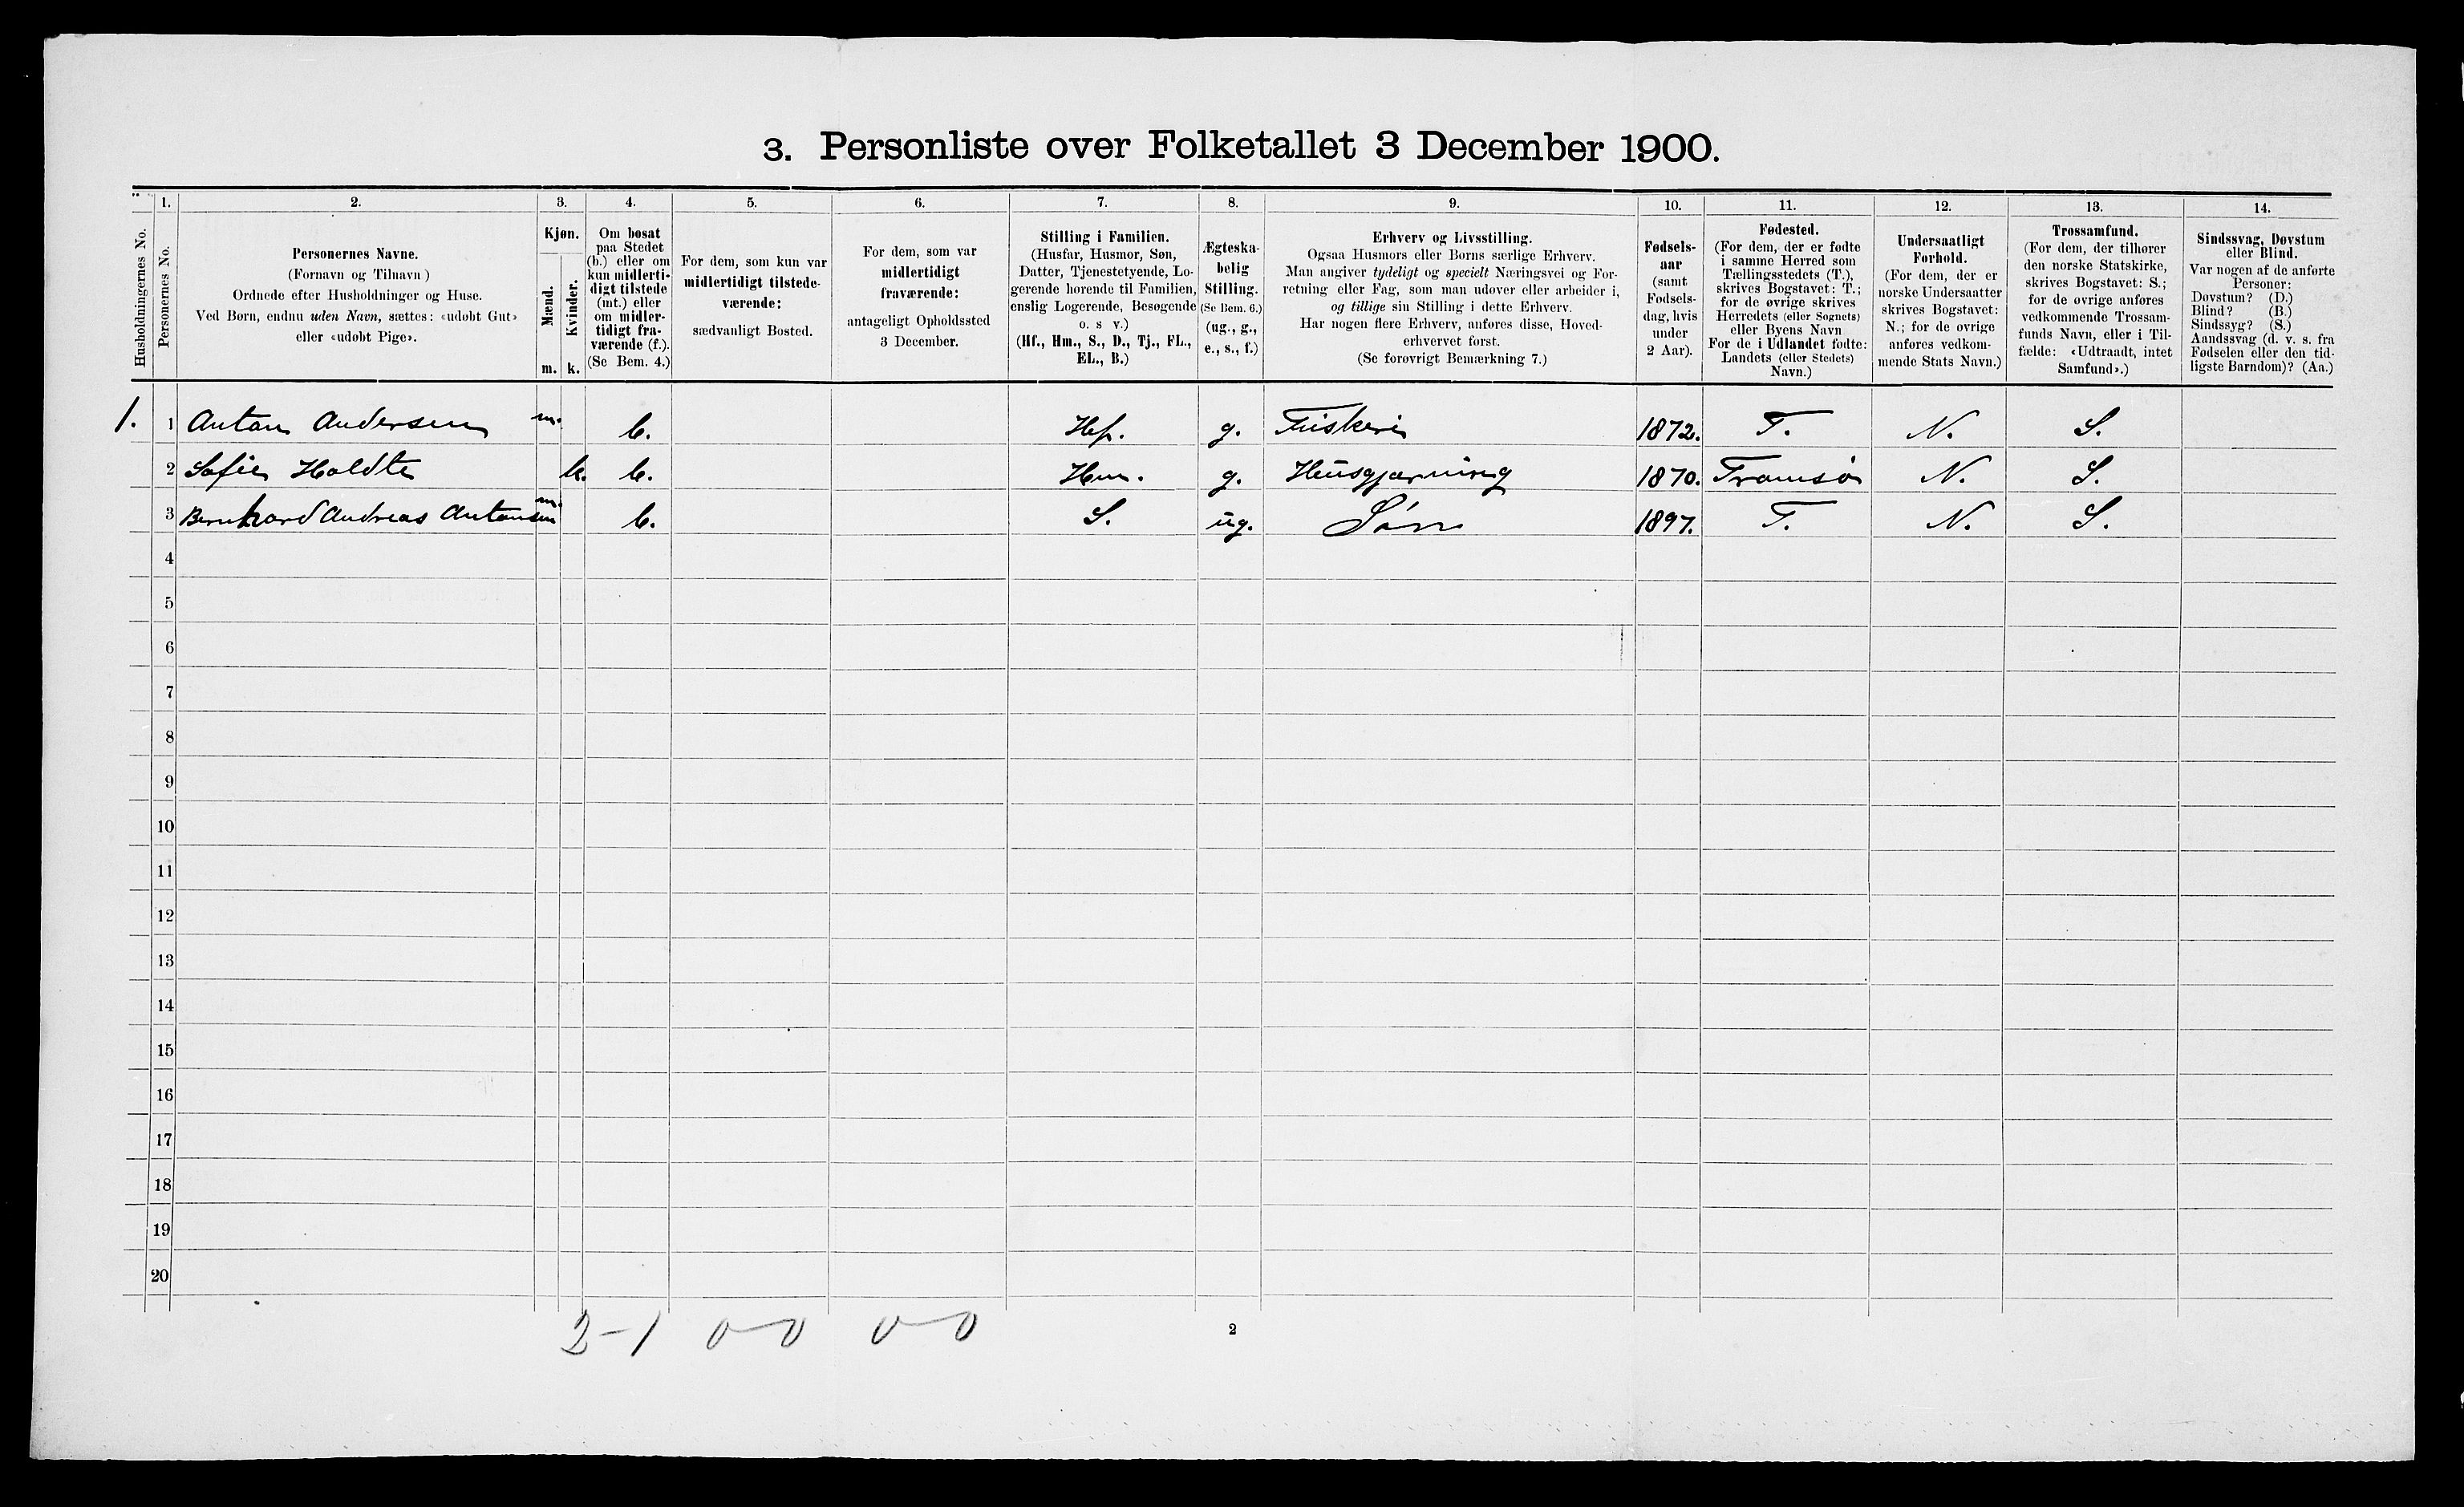 3. Personliste over Folketallet 3 December 1900.
1. 2. 3. 4. 5. 6. 7. 8. 9. 10. 11. 12. 13. 14.
Husholdningernes No.
Personernes No.
Personernes Navne.
(Fornavn og Tilnavn)
Ordnede efter Husholdninger og Huse.
Ved Børn, endnu uden Navn, sættes: «udøbt Gut»
eller «udøbt Pige».
Kjøn.
Mænd.
Kvinder.
m. k.
Om bosat
paa Stedet
(b.) eller om
kun midlerti-
digt tilstede
(mt.) eller
om midler-
tidigt fra-
værende (f.).
(Se Bem. 4.)
For dem, som kun var
midlertidigt tilstede-
værende:
sædvanligt Bosted.
For dem, som var
midlertidigt
fraværende:
antageligt Opholdssted
3 December.
Stilling i Familien.
(Husfar, Husmor, Søn,
Datter, Tjenestetyende, Lo-
gerende hørende til Familien,
enslig Logerende, Besøgende
o. s v.)
(Hf., Hm., S., D., Tj., FL.,
EL., B.)
Ægteska-
belig
Stilling.
(Se Bem. 6.)
(ug., g.,
e., s., f.)
Erhverv og Livsstilling.
Ogsaa Husmors eller Børns særlige Erhverv.
Man angiver tydeligt og specielt Næringsvei og For-
retning eller Fag, som man udøver eller arbeider i,
og tillige sin Stilling i dette Erhverv.
Har nogen flere Erhverv, anføres disse, Hoved-
erhvervet først.
(Se forøvrigt Bemærkning 7.)
Fødsels-
aar
(samt
Fødsels-
dag, hvis
under
2 Aar).
Fødested.
(For dem, der er fødte
i samme Herred som
Tællingsstedets (T.),
skrives Bogstavet: T.;
for de øvrige skrives
Herredets (eller Sognets)
eller Byens Navn
For de i Udlandet fødte:
Landets (eller Stedets)
Navn.)
Undersaatligt
Forhold.
(For dem, der er
norske Undersaatter
skrives Bogstavet:
N.; for de øvrige
anføres vedkom-
mende Stats Navn.)
Trossamfund.
(For dem, der tilhører
den norske Statskirke,
skrives Bogstavet: S.;
for de øvrige anføres
vedkommende Trossam-
funds Navn, eller i Til-
fælde: «Udtraadt, intet
Samfund».)
Sindssvag, Døvstum
eller Blind.
Var nogen af de anførte
Personer:
Døvstum? (D.)
Blind? (B.)
Sindssyg? (S.)
Aandssvag (d. v. s. fra
Fødselen eller den tid-
ligste Barndom)? (Aa.)
1. 1 Anton Andersen m. b. Hf. g. Fiskeri 1872. T. N. S.
2 Sofie Holdte k. b. Hm. g. Husgjærning 1870. Tromsø N. S.
3 Bernhard Andreas Antonsen m. b. S. ug. Søn 1897. T. N. S.
4
5
6
7
8
9
10
11
12
13
14
15
16
17
18
19
20
2-1 0-0 0-0
2